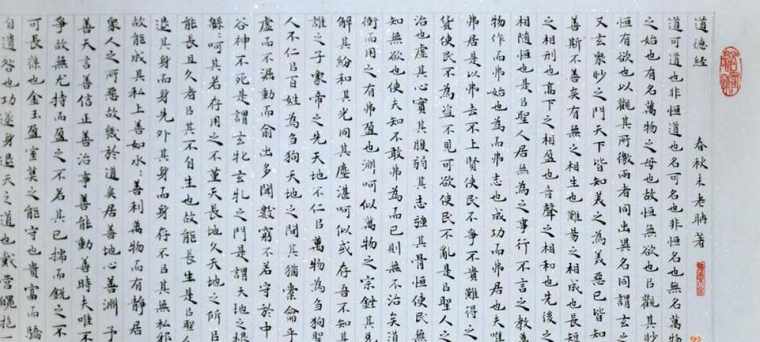 道德經 春秋末老聃著
道可道也非恒道也名可名也非恒名也無名萬物
之始也有名萬物之母也故恒無欲也㠯觀其眇
恒有欲也以觀其所徼兩者同出異名同謂玄之
又玄衆眇之門天下皆知美之為美惡已皆知
善斯不善矣有無之相生也難易之相成也長短
之相刑也高下之相盈也音聲之相和也先後之
相隨恒也是㠯聖人居無為之事行不言之教萬
物作而弗始也為而弗志也成功而弗居也夫唯
弗居是以弗去不上賢使民不爭不貴難得之
貨使民不為盜不見可欲使民不亂是㠯聖人之
治也虛其心實其腹弱其志強其骨恒使民無
知無欲也使夫知不敢弗為而已則無不治矣道
沖而用之有弗盈也淵呵似萬物之宗銼其
解其紛和其光同其塵湛呵似或存吾不知其
誰之子象帝之先天地不仁㠯萬物為芻狗聖
人不仁㠯百姓為芻狗天地之間其猶橐龠乎
虛而不淈動而俞出多聞數窮不若守於中
谷神不死是謂玄牝玄牝之門是謂天地之根
呵其若存用之不堇天長地久天地之所㠯
能長且久者㠯其不自生也故能長生是㠯聖人
退其身而身先外其身而身存不㠯其無私邪
故能成其私上善如水善利萬物而有靜居
衆人之所惡故幾於道矣居善地心善淵予
善天言善信正善治事善能動善時夫唯不
爭故無尤持而盈之不若其已揣而銳之不
可長葆也金玉盈室莫之能守也貴富而驕
自遺咎也功遂身退天之道也載營魄抱一